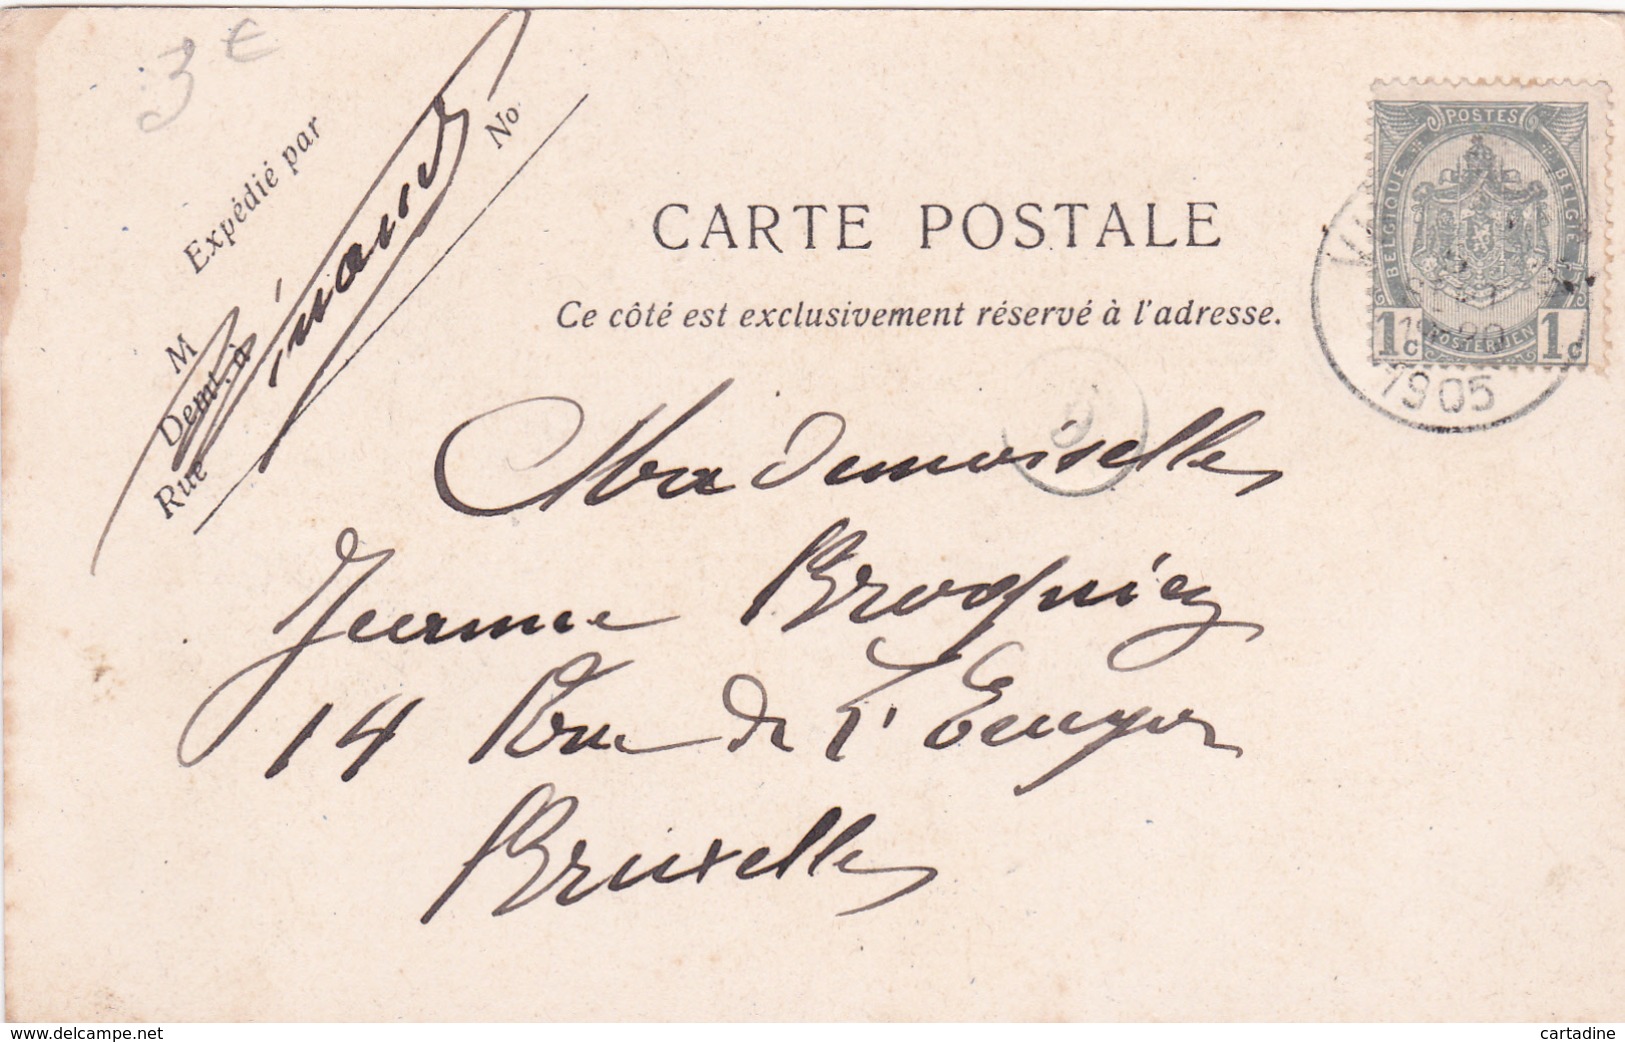 3 €
Expédié par
M
Demt. à
Rue
No
CARTE POSTALE
Ce côté est exclusivement réservé à l'adresse.
POSTES
BELGIQUE
BELGIË
1c
POSTERIJEN
1c
1905
9
Mademoiselle
Jeanne Brogniez
14 Rue de l'
Bruxelles
www.delcampe.net
cartadine